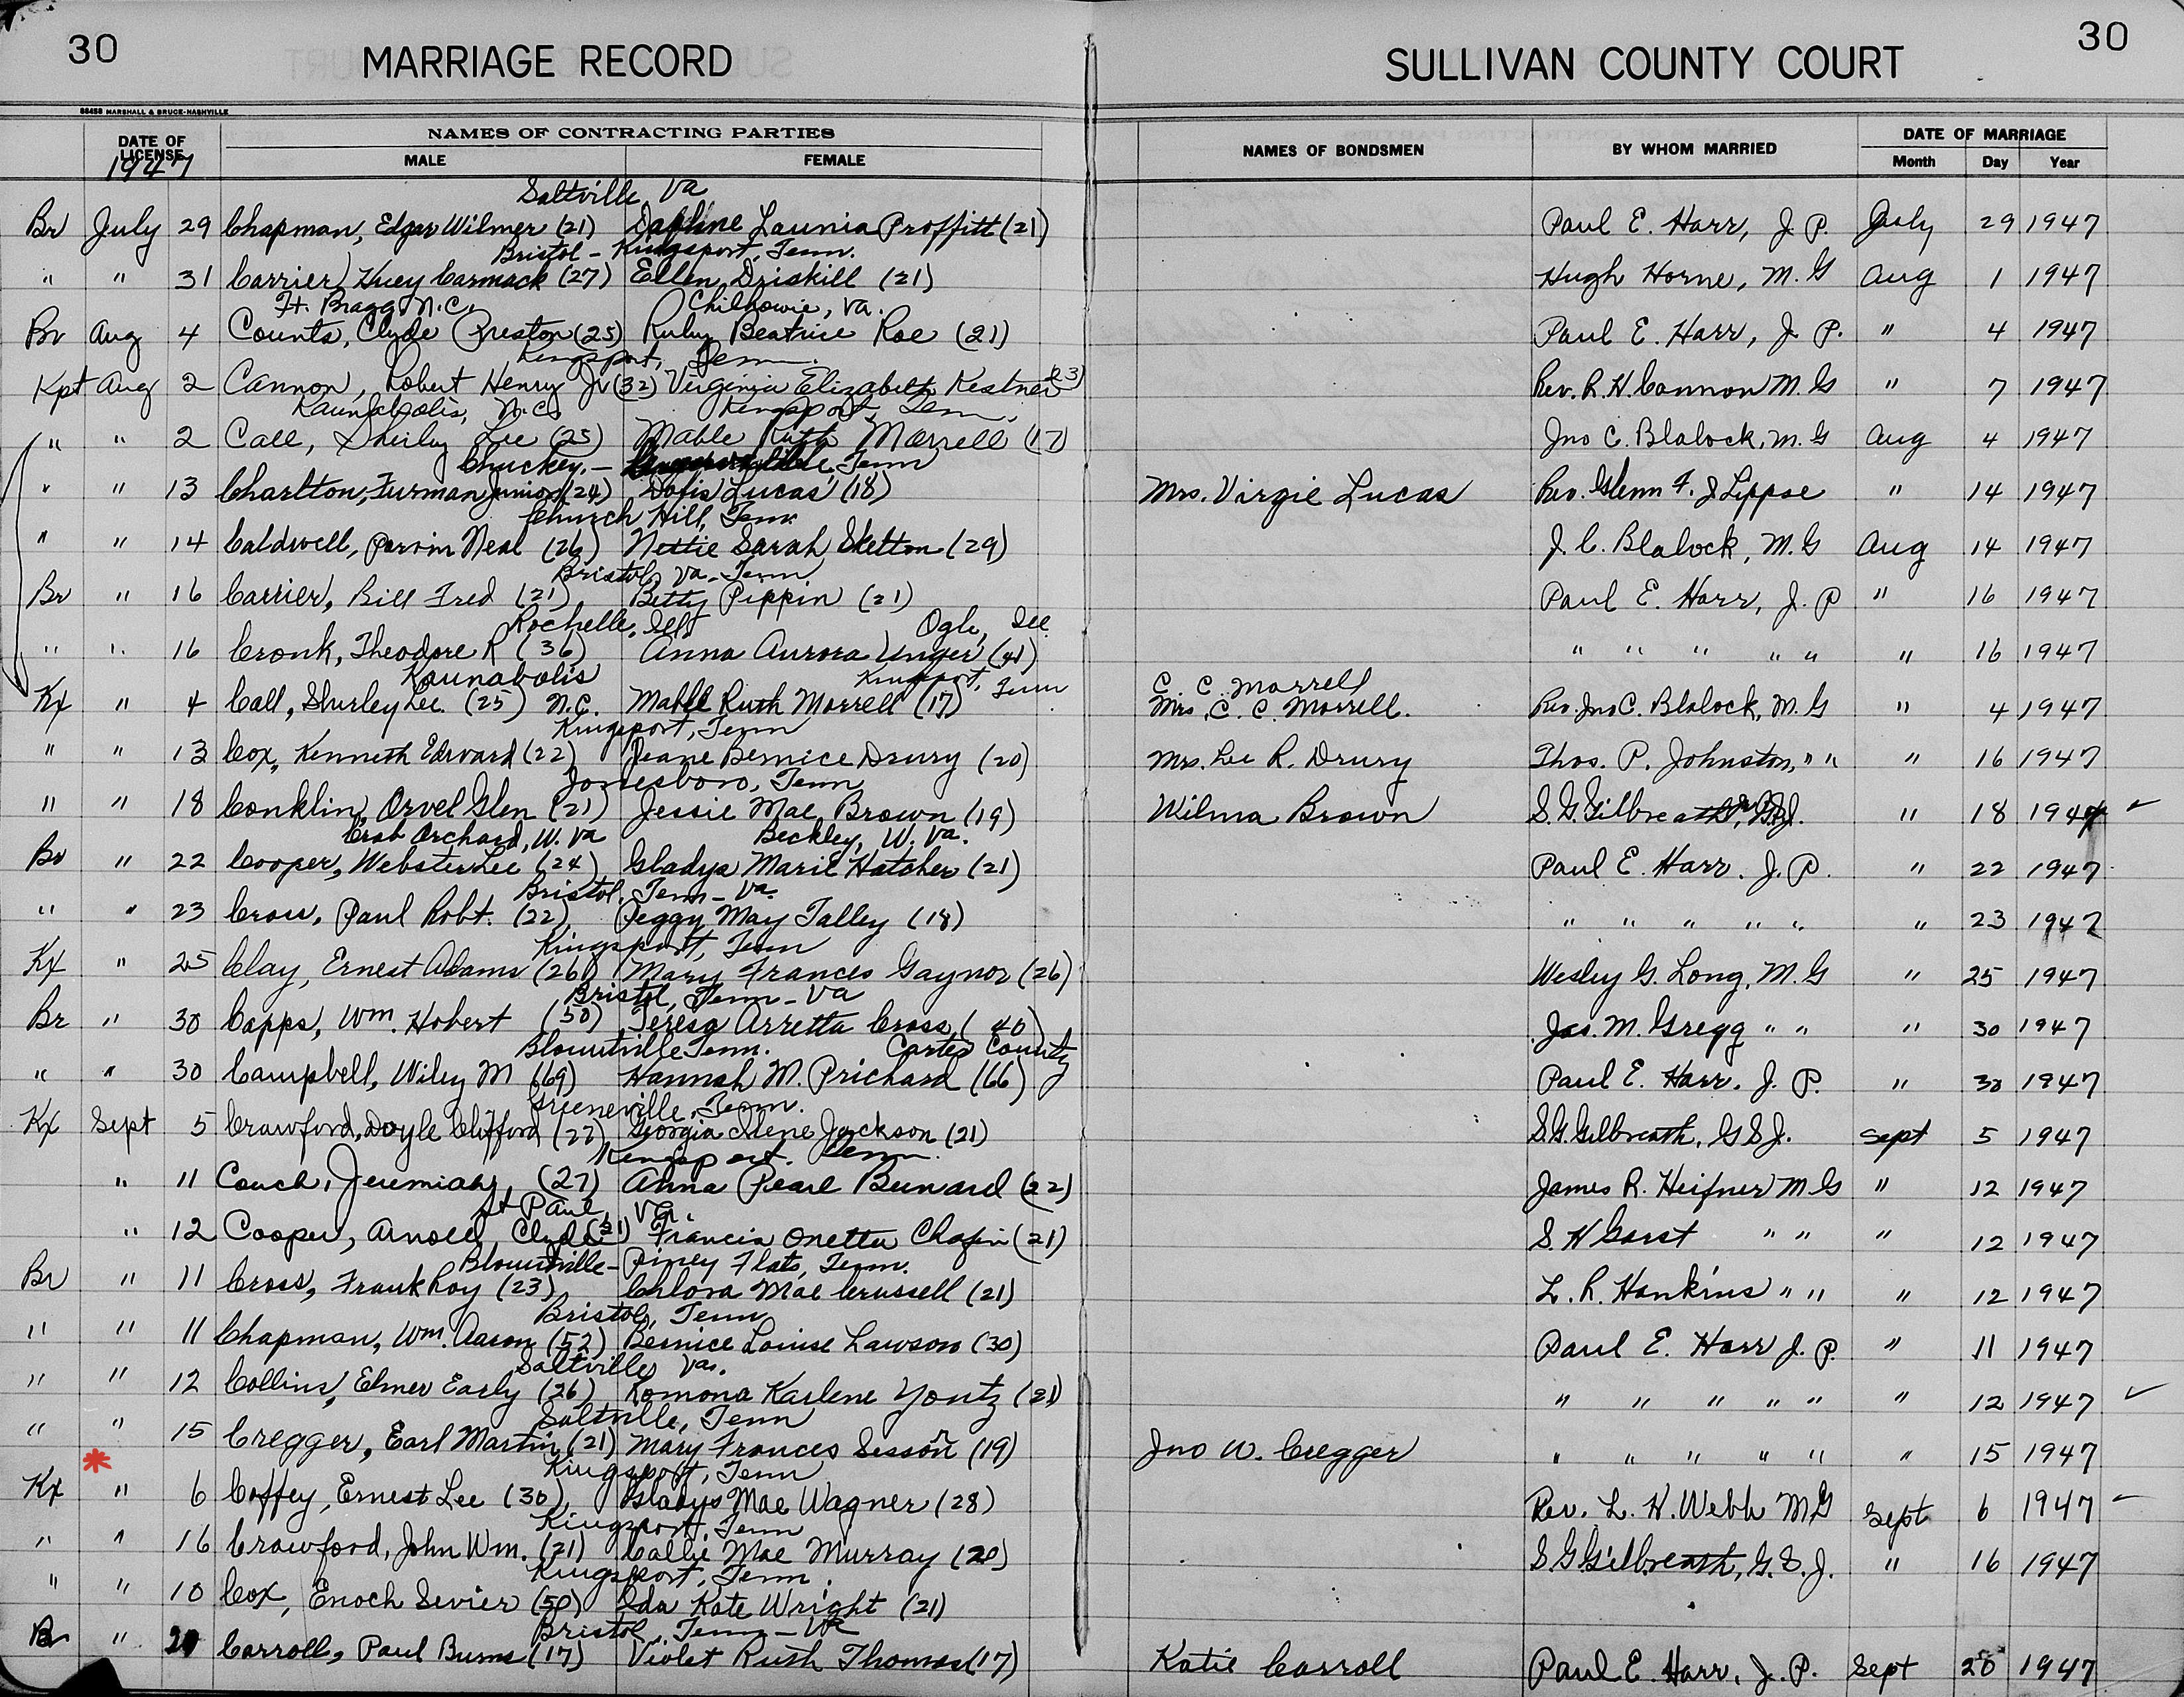 30 MARRIAGE RECORD SULLIVAN COUNTY COURT 30
88458 MARSHALL & BRUCE-NASHVILLE
DATE OF LICENSE NAMES OF CONTRACTING PARTIES NAMES OF BONDSMEN BY WHOM MARRIED DATE OF MARRIAGE
1947 MALE FEMALE Month Day Year
Saltville, Va
Br July 29 Chapman, Edgar Wilmer (21) Daphine Launia Proffitt (21) Paul E. Harr, J. P. July 29 1947
Bristol - Kingsport, Tenn.
" " 31 Carrier, Huey Carmack (27) Ellen Driskill (21) Hugh Horne, M. G Aug 1 1947
Ft. Bragg, N.C. Chilhowie, Va.
Br Aug 4 Counts, Clyde Preston (25) Ruby Beatrice Roe (21) Paul E. Harr, J. P. " 4 1947
Kingsport, Tenn.
Kpt Aug 2 Cannon, Robert Henry Jr (32) Virginia Elizabeth Kestner (23) Rev. R. H. Cannon M. G " 7 1947
Kannapolis, N.C. Kingsport, Tenn.
" " 2 Call, Shirley Lee (25) Mable Ruth Morrell (17) Jno C. Blalock, M. G Aug 4 1947
Chuckey, - Tenn
" " 13 Charlton, Furman Junior (24) Doris Lucas (18) Mrs. Virgie Lucas Rev. Glenn F. " 14 1947
Church Hill, Tenn
" " 14 Caldwell, Neal (26) Nettie Sarah Skelton (29) J. C. Blalock, M. G Aug 14 1947
Bristol, Va - Tenn
Br " 16 Carrier, Bill Fred (21) Betty Pippin (21) Paul E. Harr, J. P " 16 1947
Rochelle, Ills Ogle, Ill.
" " 16 Cronk, Theodore R (36) Anna Aurora Unger (41) " " " " " " 16 1947
Kannapolis Kingsport, Tenn C. C. Morrell
Kx " 4 Call, Shurley Lee (25) N.C. Mable Ruth Morrell (17) Mrs. C. C. Morrell. Rev. Jno C. Blalock, M. G " 4 1947
Kingsport, Tenn
" " 13 Cox, Kenneth Edward (22) Jeane Bernice Drury (20) Mrs. Lee R. Drury Thos. P. Johnston, " " " 16 1947
Jonesboro, Tenn
" " 18 Conklin, Orvel Glen (21) Jessie Mae Brown (19) Wilma Brown S. G. Gilbreath, " 18 1947
Crab Orchard, W. Va Beckley, W. Va.
Br " 22 Cooper, Webster Lee (24) Gladys Marie Hatcher (21) Paul E. Harr. J. P. " 22 1947
Bristol, Tenn - Va
" " 23 Cross, Paul Robt. (22) Peggy May Talley (18) " " " " " " 23 1947
Kingsport, Tenn
Kx " 25 Clay, Ernest Adams (26) Mary Frances Gaynor (26) Wesley G. Long, M. G " 25 1947
Bristol, Tenn - Va
Br " 30 Capps, Wm. Hobert (50) Teresa Arretta Cross (40) Jas. M. Gregg " " " 30 1947
Blountville Tenn. Carter County
" " 30 Campbell, Wiley M (69) Hannah M. Prichard (66) Paul E. Harr. J. P. " 30 1947
Greeneville, Tenn.
Kx Sept 5 Crawford, Doyle Clifford (27) Georgia Ilene Jackson (21) S. G. Gilbreath, G S J. Sept 5 1947
Kingsport. Tenn.
" 11 Couch, Jeremiah (27) Anna Pearl Bunard (22) James R. Heifner M G " 12 1947
St Paul, Va.
" 12 Cooper, Arnold Clyde (21) Francis Onetta Chafin (21) S. H Garst " " " 12 1947
Blountville - Piney Flats, Tenn.
Br " 11 Cross, Frank Roy (23) Chlora Mae Crussell (21) L. R. Hankins " " " 12 1947
Bristol, Tenn
" " 11 Chapman, Wm. Aaron (52) Bernice Louise Lawson (30) Paul E. Harr J. P. " 11 1947
Saltville, Va.
" " 12 Collins, Elmer Early (26) Romona Karlene Yontz (21) " " " " " " 12 1947
Saltville, Tenn
" " 15 Cregger, Earl Martin (21) Mary Frances Sesson (19) Jno W. Cregger " " " " " " 15 1947
Kingsport, Tenn
Kx " 6 Coffey, Ernest Lee (30) Gladys Mae Wagner (28) Rev. L. H. Webb M G Sept 6 1947
Kingsport, Tenn
" " 16 Crawford, John Wm. (21) Callie Mae Murray (20) S G Gilbreath, G. S. J. " 16 1947
Kingsport, Tenn.
" " 10 Cox, Enoch Sevier (50) Ida Kate Wright (21)
Bristol, Tenn - Va
Br " 20 Carroll, Paul Burns (17) Violet Ruth Thomas (17) Katie Carroll Paul E. Harr, J. P. Sept 20 1947